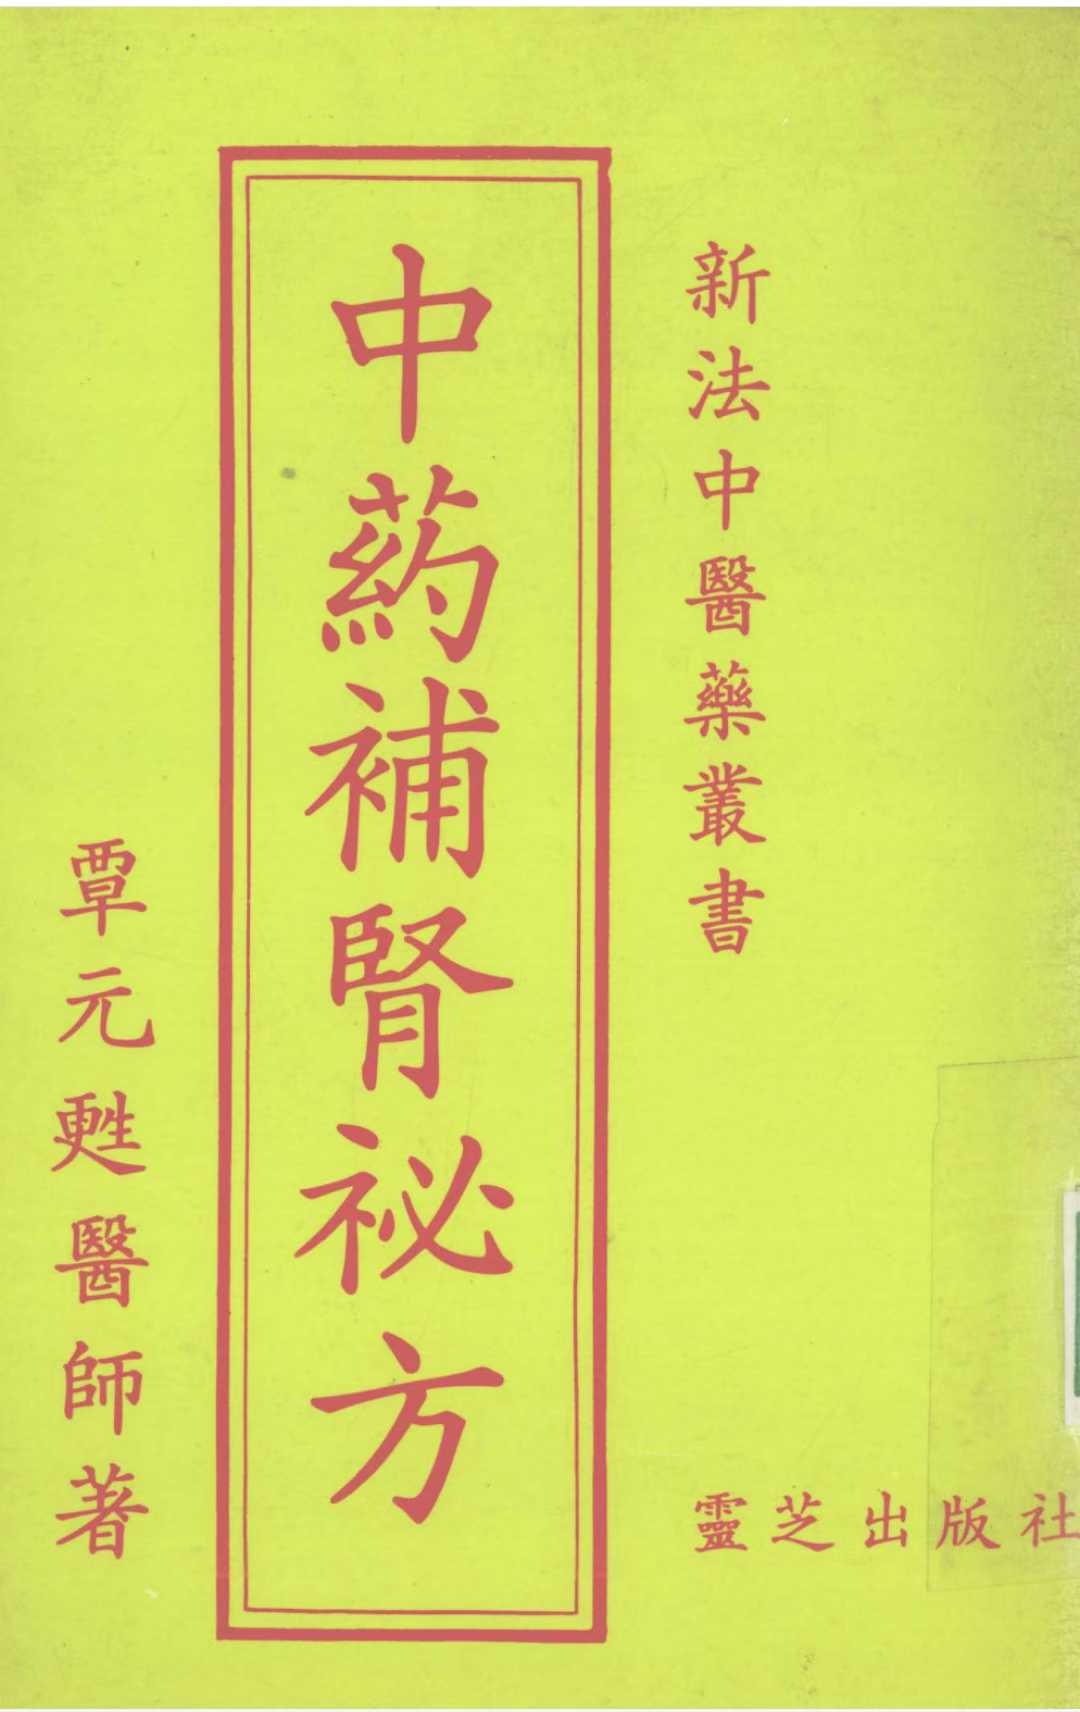 新法中醫藥叢書
中葯補腎祕方
覃元甦醫師著
靈芝出版社